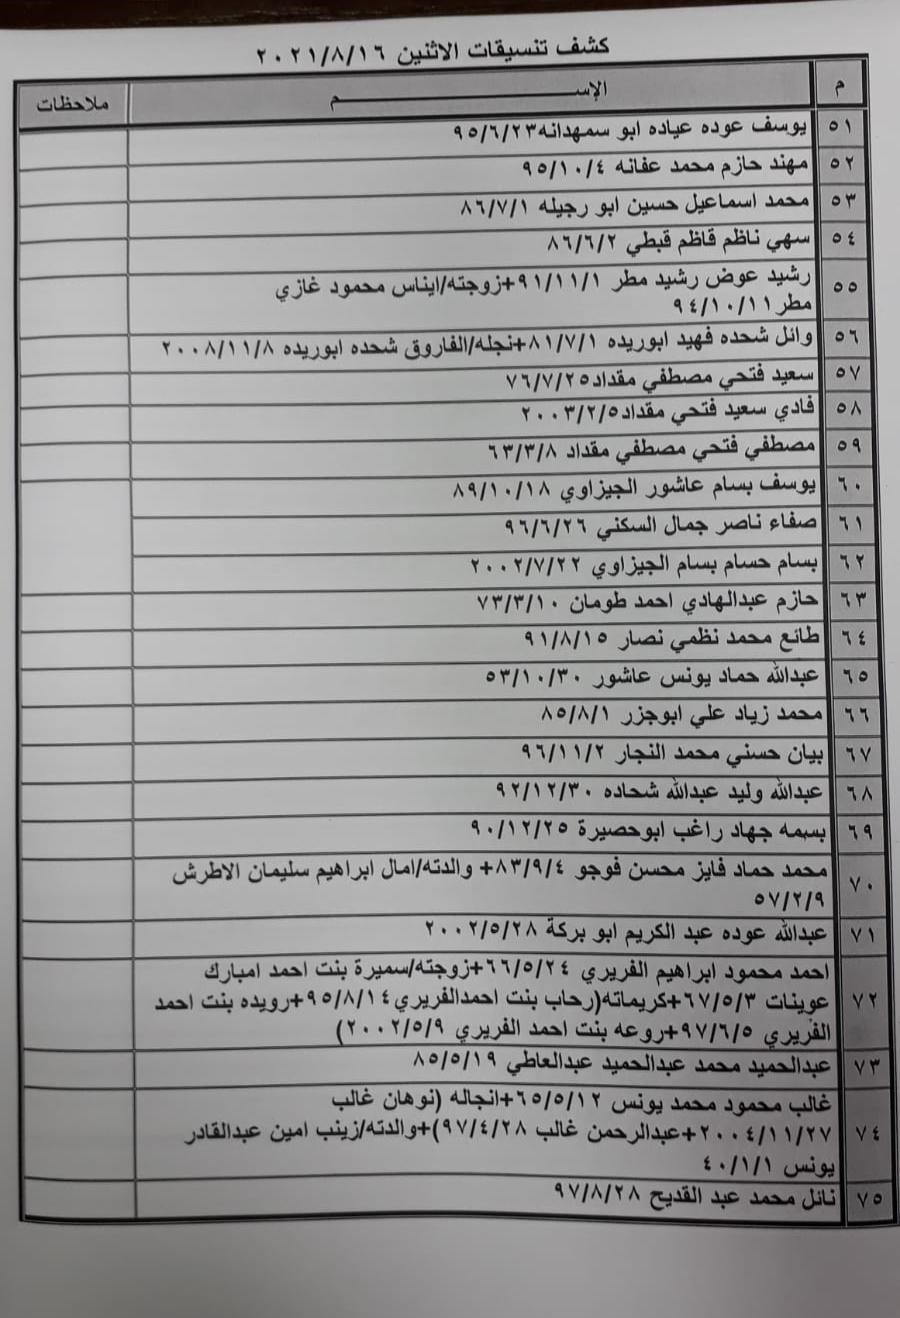 كشف تنسيقات الاثنين ٢٠٢١/٨/١٦
م الإســـــــــــــم ملاحظات
٥١ يوسف عوده عياده ابو سمهدانه٩٥/٦/٢٣
٥٢ مهند حازم محمد عفانه ٩٥/١٠/٤
٥٣ محمد اسماعيل حسين ابو رجيله ٨٦/٧/١
٥٤ سهي ناظم قاظم قبطي ٨٦/٦/٢
٥٥ رشيد عوض رشيد مطر ٩١/١١/١+زوجته/ايناس محمود غازي
مطر٩٤/١٠/١١
٥٦ وائل شحده فهيد ابوريده ٨١/٧/١+نجله/الفاروق شحده ابوريده ٢٠٠٨/١١/٨
٥٧ سعيد فتحي مصطفي مقداد٧٦/٧/٢٥
٥٨ فادي سعيد فتحي مقداد٢٠٠٣/٢/٥
٥٩ مصطفي فتحي مصطفي مقداد ٦٣/٣/٨
٦٠ يوسف بسام عاشور الجيزاوي ٨٩/١٠/١٨
٦١ صفاء ناصر جمال السكني ٩٦/٦/٢٦
٦٢ بسام حسام بسام الجيزاوي ٢٠٠٢/٧/٢٢
٦٣ حازم عبدالهادي احمد طومان ٧٣/٣/١٠
٦٤ طائع محمد نظمي نصار ٩١/٨/١٥
٦٥ عبدالله حماد يونس عاشور ٥٣/١٠/٣٠
٦٦ محمد زياد علي ابوجزر ٨٥/٨/١
٦٧ بيان حسني محمد النجار ٩٦/١١/٢
٦٨ عبدالله وليد عبدالله شحاده ٩٢/١٢/٣٠
٦٩ بسمه جهاد راغب ابوحصيرة ٩٠/١٢/٢٥
٧٠ محمد حماد فايز محسن فوجو ٨٣/٩/٤+ والدته/امال ابراهيم سليمان الاطرش
٥٧/٢/٩
٧١ عبدالله عوده عبد الكريم ابو بركة ٢٠٠٢/٥/٢٨
٧٢ احمد محمود ابراهيم الفريري ٦٦/٥/٢٤+زوجته/سميرة بنت احمد امبارك
عوينات ٦٧/٥/٣+كريماته(رحاب بنت احمدالفريري٩٥/٨/١٤+رويده بنت احمد
الفريري ٩٧/٦/٥+روعه بنت احمد الفريري ٢٠٠٢/٥/٩)
٧٣ عبدالحميد محمد عبدالحميد عبدالعاطي ٨٥/٥/١٩
٧٤ غالب محمود محمد يونس ٦٥/٥/١٢+انجاله (نوهان غالب
٢٠٠٤/١١/٢٧+عبدالرحمن غالب ٩٧/٤/٢٨)+والدته/زينب امين عبدالقادر
يونس ٤٠/١/١
٧٥ نائل محمد عبد القديح ٩٧/٨/٢٨